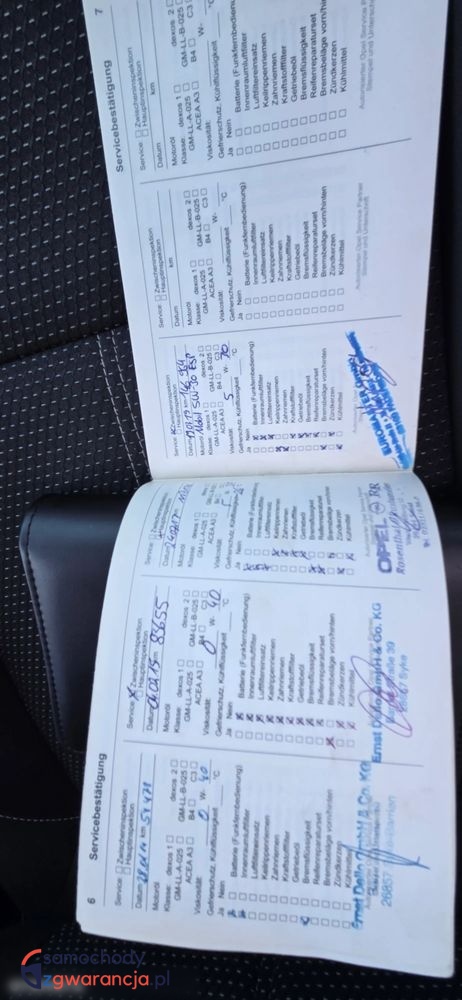 6
Servicebestätigung
Service: Zwischeninspektion
Hauptinspektion
Datum km 54 471
Motoröl
Klasse: dexos 1 dexos 2
GM-LL-A-025 GM-LL-B-025
ACEA A3 B4 C3
Viskosität 0 W- 40
Gefrierschutz, Kühlflüssigkeit °C
Ja Nein
Batterie (Funkfernbedienung)
Innenraumluftfilter
Luftfiltereinsatz
Keilrippenriemen
Zahnriemen
Kraftstofffilter
Getriebeöl
Bremsflüssigkeit
Reifenreparaturset
Bremsbeläge vorn/hinten
Zündkerzen
Kühlmittel
Ernst Dello GmbH & Co. KG
Service: Zwischeninspektion
Hauptinspektion
Datum km 83655
Motoröl
Klasse: dexos 1 dexos 2
GM-LL-A-025 GM-LL-B-025
ACEA A3 B4 C3
Viskosität 0 W- 40
Gefrierschutz, Kühlflüssigkeit °C
Ja Nein
Batterie (Funkfernbedienung)
Innenraumluftfilter
Luftfiltereinsatz
Keilrippenriemen
Zahnriemen
Kraftstofffilter
Getriebeöl
Bremsflüssigkeit
Reifenreparaturset
Bremsbeläge vorn/hinten
Zündkerzen
Kühlmittel
Ernst Dello GmbH & Co. KG
39
Syke
Service: Zwischeninspektion
Hauptinspektion
Datum km
Motoröl
Klasse: dexos 1
GM-LL-A-025
ACEA A3
Viskosität
Gefrierschutz, Kühlflüssigkeit
Ja Nein
Batterie
Innenraumluftfilter
Luftfiltereinsatz
Keilrippenriemen
Zahnriemen
Kraftstofffilter
Getriebeöl
Bremsflüssigkeit
Reifenreparaturset
Bremsbeläge vorn/hinten
Zündkerzen
Kühlmittel
OPEL RR
7
Servicebestätigung
Service: Zwischeninspektion
Hauptinspektion
Datum km
Motoröl Mobil 5W30 ESP
Klasse: dexos 1 dexos 2
GM-LL-A-025 GM-LL-B-025
ACEA A3 B4 C3
Viskosität 5 W- 30
Gefrierschutz, Kühlflüssigkeit °C
Ja Nein
Batterie (Funkfernbedienung)
Innenraumluftfilter
Luftfiltereinsatz
Keilrippenriemen
Zahnriemen
Kraftstofffilter
Getriebeöl
Bremsflüssigkeit
Reifenreparaturset
Bremsbeläge vorn/hinten
Zündkerzen
Kühlmittel
Service: Zwischeninspektion
Hauptinspektion
Datum km
Motoröl
Klasse: dexos 1 dexos 2
GM-LL-A-025 GM-LL-B-025
ACEA A3 B4 C3
Viskosität W-
Gefrierschutz, Kühlflüssigkeit °C
Ja Nein
Batterie (Funkfernbedienung)
Innenraumluftfilter
Luftfiltereinsatz
Keilrippenriemen
Zahnriemen
Kraftstofffilter
Getriebeöl
Bremsflüssigkeit
Reifenreparaturset
Bremsbeläge vorn/hinten
Zündkerzen
Kühlmittel
Autorisierter Opel Service Partner
Stempel und Unterschrift
Service: Zwischeninspektion
Hauptinspektion
Datum km
Motoröl
Klasse: dexos 1 dexos 2
GM-LL-A-025 GM-LL-B-025
ACEA A3 B4 C3
Viskosität W-
Gefrierschutz, Kühlflüssigkeit
Ja Nein
Batterie (Funkfernbedienung)
Innenraumluftfilter
Luftfiltereinsatz
Keilrippenriemen
Zahnriemen
Kraftstofffilter
Getriebeöl
Bremsflüssigkeit
Reifenreparaturset
Bremsbeläge vorn/hinten
Zündkerzen
Kühlmittel
Autorisierter Opel Service Partner
Stempel und Unterschrift
samochody
zgwarancja.pl